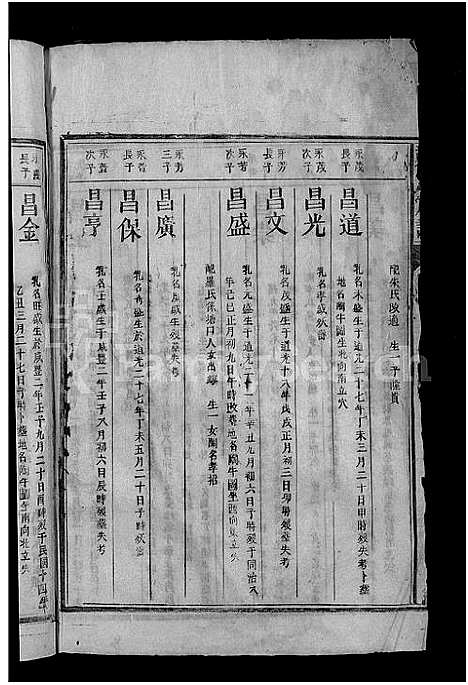 配朱氏改適 生一子隆貴
永茂長子
昌道
乳名木盛生于道光二十七年丁未三月二十日申時歿失考卜塟
地名關牛圍生北向南立穴
永茂次子
昌光
乳名季盛歿塟
永芳長子
昌文
乳名茂盛生于道光十八年戊戌正月初三日卯時歿塟失考
永芳次子
昌盛
乳名元盛生于道光二十一年辛丑九月初六日子時歿于同治八
年己巳正月初九日午時改塟地名關牛圍坐 向 立穴
配羅氏 塘口人女 生一女閨名孝招
永芳三子
昌廣
乳名 盛生歿塟失考
永齋長子
昌保
乳名 盛生於道光二十七年丁未五月二十日子時歿塟
永齋次子
昌亨
乳名壬盛生于咸豐二年壬子八月初六日辰時歿塟失考
永茂長子
昌金
乳名旺盛生於咸豐二年壬子九月二十日酉時歿于民國十四年
乙丑三月二十七日子時卜塟地名關牛圍 南向北立穴